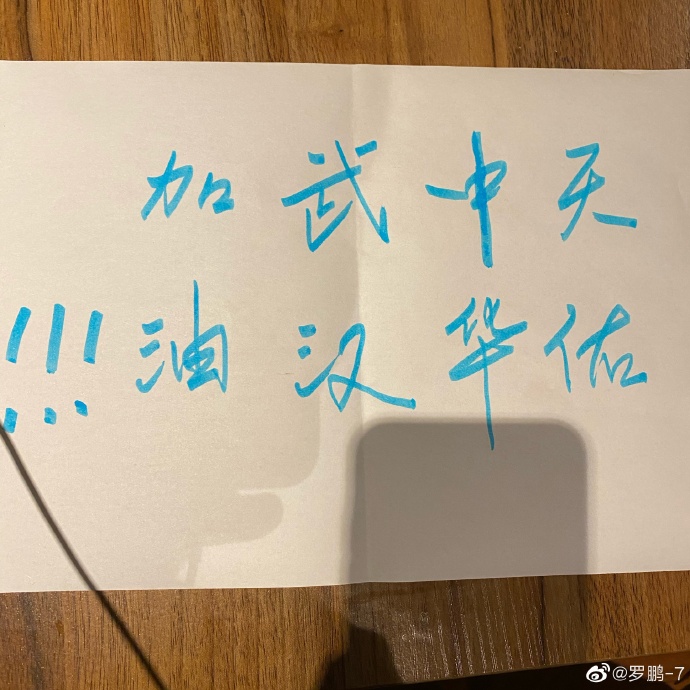 天佑
中华
武汉
加油!!!
@罗鹏-7